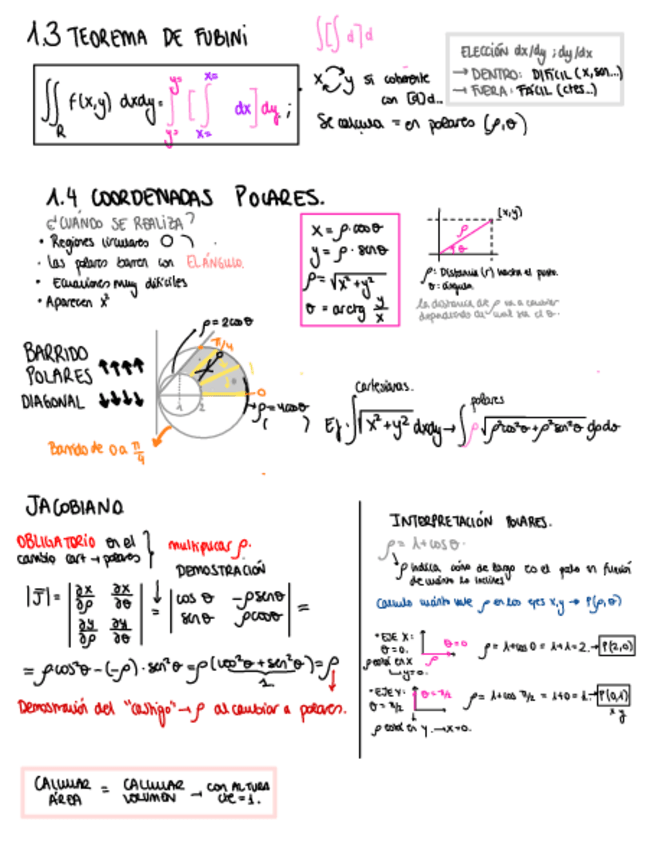 1.3 TEOREMA DE FUBINI
∫∫[∫ d]d
∬_R f(x,y) dxdy = ∫_{y=}^{y=} [∫_{x=}^{x=} dx] dy ;
x y si coherente
con [∫] d...
Se calcula = en polares (ρ,θ)
ELECCIÓN dx/dy ; dy/dx
→ DENTRO: DIFÍCIL (x, sen...)
→ FUERA: FÁCIL (ctes..)
1.4 COORDENADAS POLARES.
¿CUÁNDO SE REALIZA?
• Regiones circulares
• Las polares barren con EL ÁNGULO.
• Ecuaciones muy difíciles
• Aparecen x²
x = ρ·cosθ
y = ρ·senθ
ρ = √x²+y²
θ = arctg y/x
(x,y)
ρ
θ
ρ: Distancia (r) hasta el punto.
θ: ángulo.
la distancia de ρ va a cambiar
dependiendo de cual sea el θ.
BARRIDO
POLARES ↑↑↑↑
DIAGONAL ↓↓↓↓
ρ = 2cosθ
π/4
ρ
0
1 2
ρ = 4cosθ
( )
Barrido de 0 a π/4
cartesianas.
polares
Ej: ∫√x²+y² dxdy → ∫ρ √ρ²cos²θ+ρ²sen²θ dρdθ
JACOBIANO
OBLIGATORIO en el
cambio cart → polares
multiplicar ρ.
DEMOSTRACIÓN
|J| = | ∂x/∂ρ ∂x/∂θ |
| ∂y/∂ρ ∂y/∂θ |
→ | cosθ -ρsenθ |
| senθ ρcosθ | =
= ρcos²θ - (-ρ)·sen²θ = ρ(cos²θ + sen²θ) = ρ
1
Demostración del "castigo" → ρ al cambiar a polares.
INTERPRETACIÓN POLARES.
ρ = 1+cosθ.
ρ indica cómo de largo es el palo en función
de cuánto lo inclines
Calculo cuánto vale ρ en los ejes x,y → P(ρ,θ)
• EJE X:
θ = 0.
ρ estará en X
y=0.
θ=0
ρ
ρ = 1+cos 0 = 1+1 = 2. → P(2,0)
• EJE Y:
θ = π/2
θ = π/2
ρ = 1+cos π/2 = 1+0 = 1. → P(0,1)
x y
ρ estará en Y. → x=0.
CALCULAR ÁREA = CALCULAR VOLUMEN → CON ALTURA